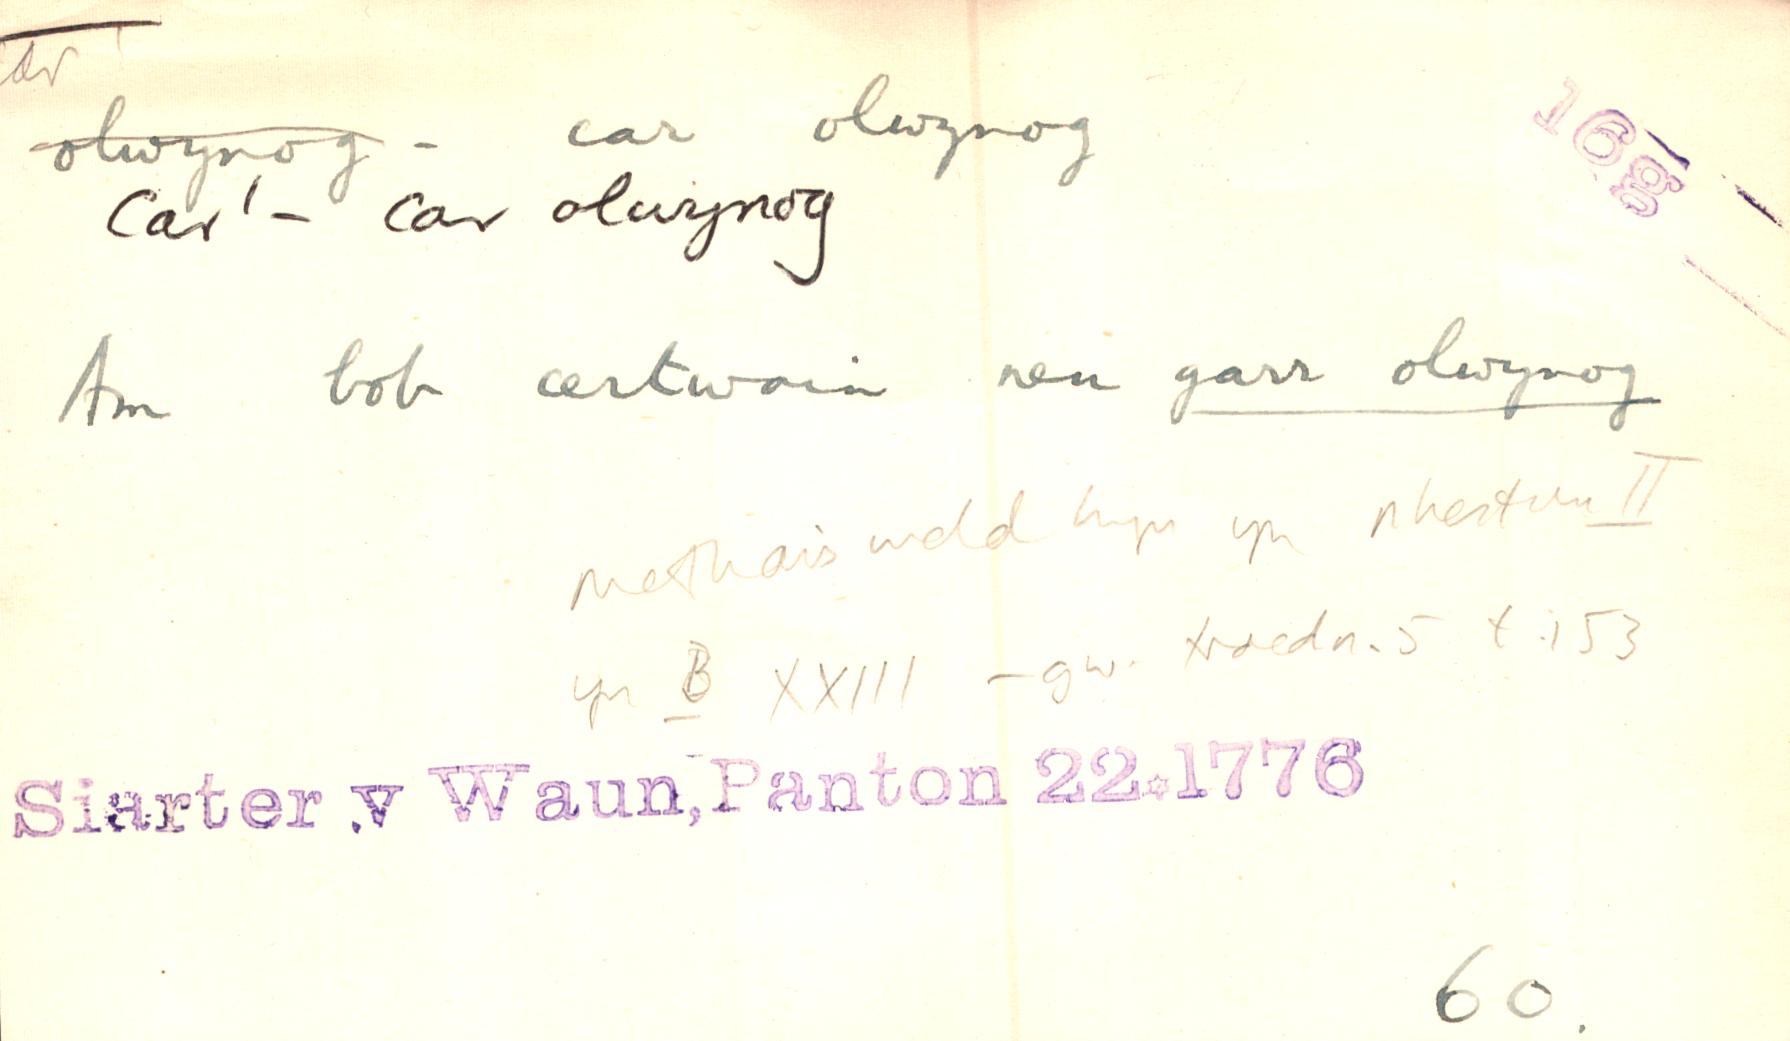 16g
olwynog - car olwynog
Car¹ - car olwynog
Am bob certwain neu garr olwynog
methais weld hyn yn nhestun II
yn B XXIII - gw. troedn. 5 t. 153
Siarter y Waun, Panton 22. 1776
60.